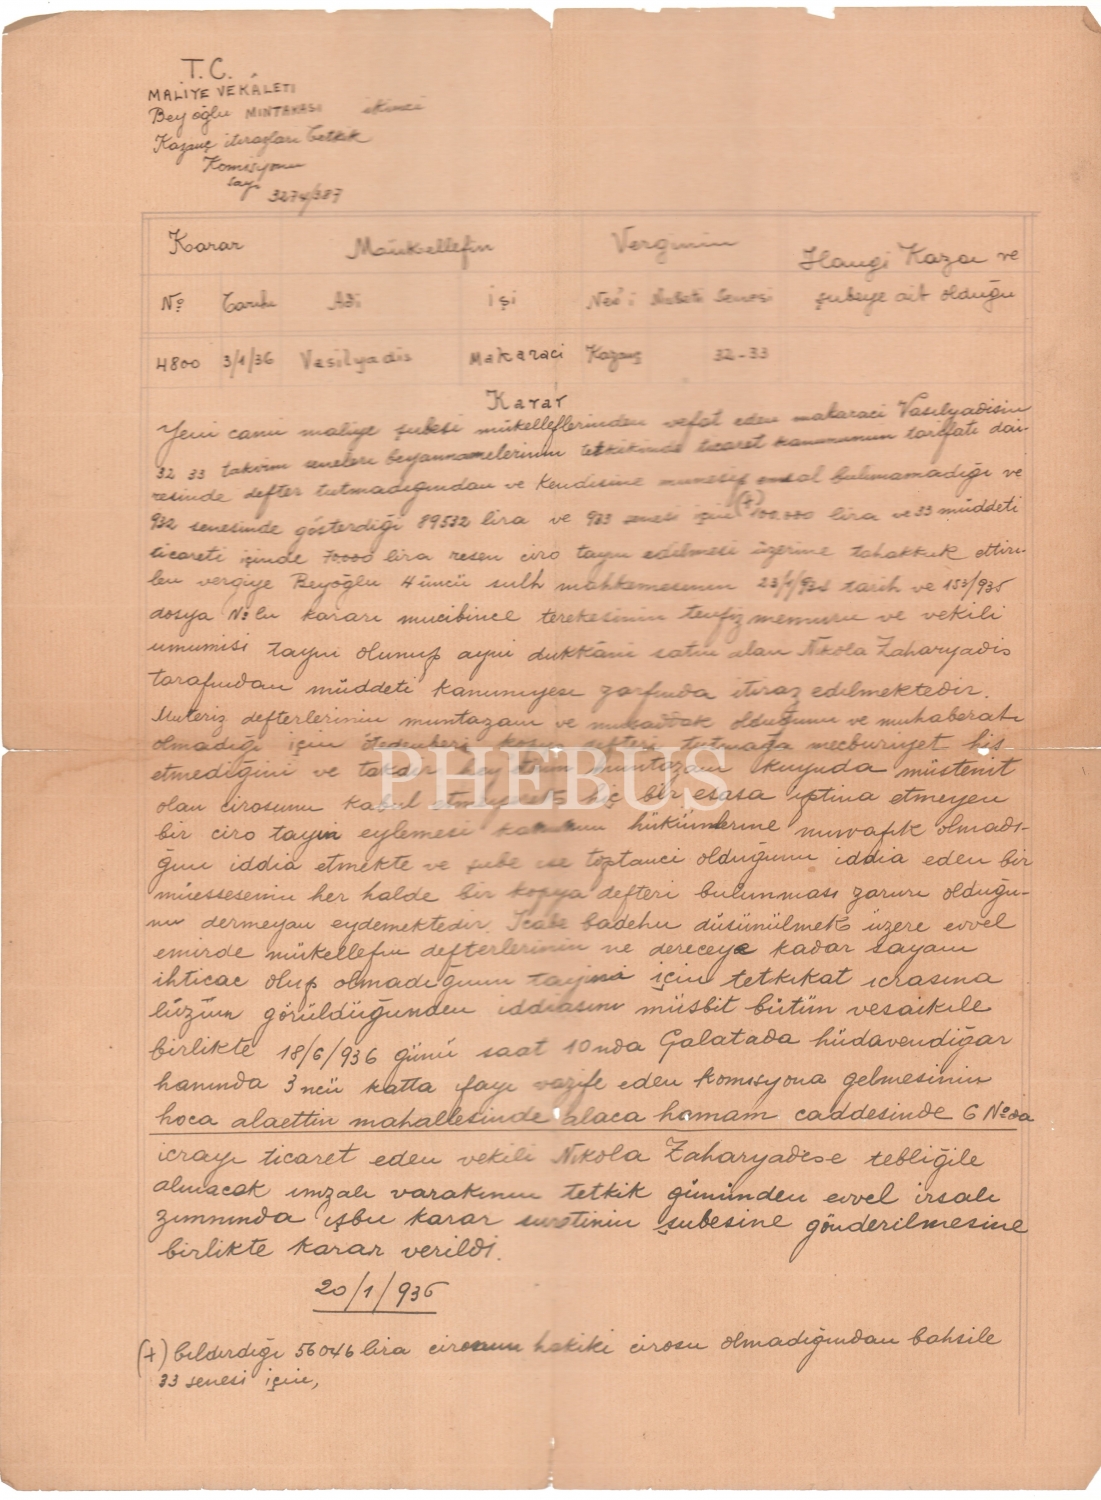 T.C.
MALİYE VEKÂLETİ
Beyoğlu MINTAKASI ikinci
Kazanç itirazları tetkik
Komisyonu
sayı
3274/387
Karar Mükellefin Verginin Hangi Kaza ve
No Tarihi Adi işi Nev'i Nisbeti Senesi şubeye ait olduğu
4800 3/1/36 Vasilyadis Makaraci Kazanç 32-33
Karar
Yeni cami maliye şubesi mükelleflerinden vefat eden makaraci Vasilyadisin
32 33 takvim seneleri beyannamelerinin tetkikinde ticaret kanununun tarifatı dai-
resinde defter tutmadığından ve kendisine emsal bulunamadığı ve
932 senesinde gösterdiği 89532 lira ve 933 senesi için (+) 100.000 lira ve 33 müddeti
ticareti içinde 70000 lira resen ciro tayin edilmesi üzerine tahakkuk ettiri-
len vergiye Beyoğlu 4 üncü sulh mahkemesinin tarih ve 153/935
dosya No lu kararı mucibince terekesinin tenfiz memuru ve vekili
umumisi tayin olunup ayni dukkâni satın alan Nikola Zaharyadis
tarafından müddeti kanuniyesi zarfında itiraz edilmektedir.
Muteriz defterlerinin muntazam ve musaddak olduğunu ve muhaberatı
olmadığı için ötedenberi kopya defteri tutmağa mecburiyet his
etmediğini ve muntazam kuyuda müstenit
olan cirosunu kabul etmeyerek hiç bir esasa iptina etmeyen
bir ciro tayin eylemesi kanunun hükümlerine muvafık olmadı-
ğını iddia etmekte ve şube ise toptanci olduğunu iddia eden bir
müessesenin her halde bir kopya defteri bulunması zaruri olduğu-
nu dermeyan eydemektedir. İcabı badehu düsünülmek üzere evvel
emirde mükellefin defterlerinin ne dereceye kadar sayanı
ihticac olup olmadığının tayini için tetkikat icrasına
lüzüm görüldüğünden iddiasını müsbit bütün vesaikile
birlikte 18/6/936 günü saat 10 nda Galatada hüdavendiğar
hanında 3 ncü katta ifayı vazife eden komisyona gelmesinin
hoca alaettin mahallesinde alaca hamam caddesinde 6 No da
icrayı ticaret eden vekili Nikola Zaharyadise tebliğile
alınacak imzalı varakının tetkik gününden evvel irsali
zımnında işbu karar suretinin şubesine gönderilmesine
birlikte karar verildi.
20/1/936
(+) bildirdiği 56046 lira cironun hakiki cirosu olmadığından bahsile
33 senesi için,
PHEBUS